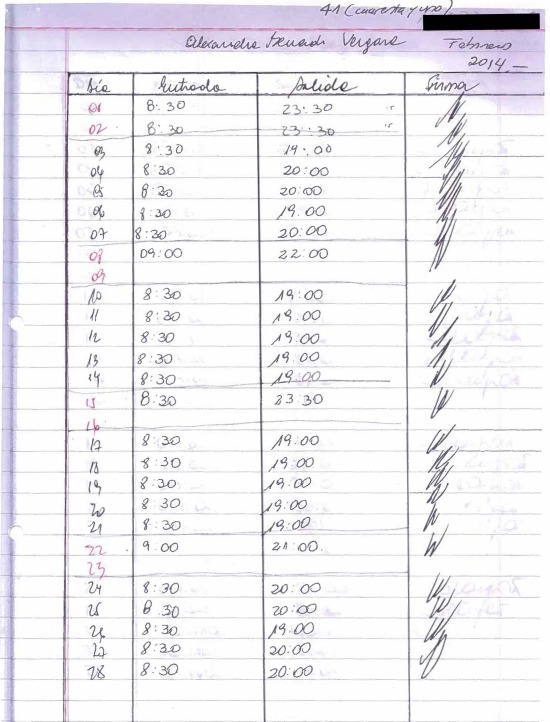 41 (cuarenta y uno)
Alexandra Vergara Febrero
2014.-
Día Entrada Salida Firma
01 8:30 23:30 "
02 8:30 23:30 "
03 8:30 19:00
04 8:30 20:00
05 8:30 20:00
06 8:30 19:00
07 8:30 20:00
08 09:00 22:00
09
10 8:30 19:00
11 8:30 19:00
12 8:30 19:00
13 8:30 19:00
14 8:30 19:00
15 8:30 23:30
16
17 8:30 19:00
18 8:30 19:00
19 8:30 19:00
20 8:30 19:00
21 8:30 19:00
22 9:00 21:00.
23
24 8:30 20:00
25 8:30 20:00
26 8:30 19:00
27 8:30 20:00
28 8:30 20:00